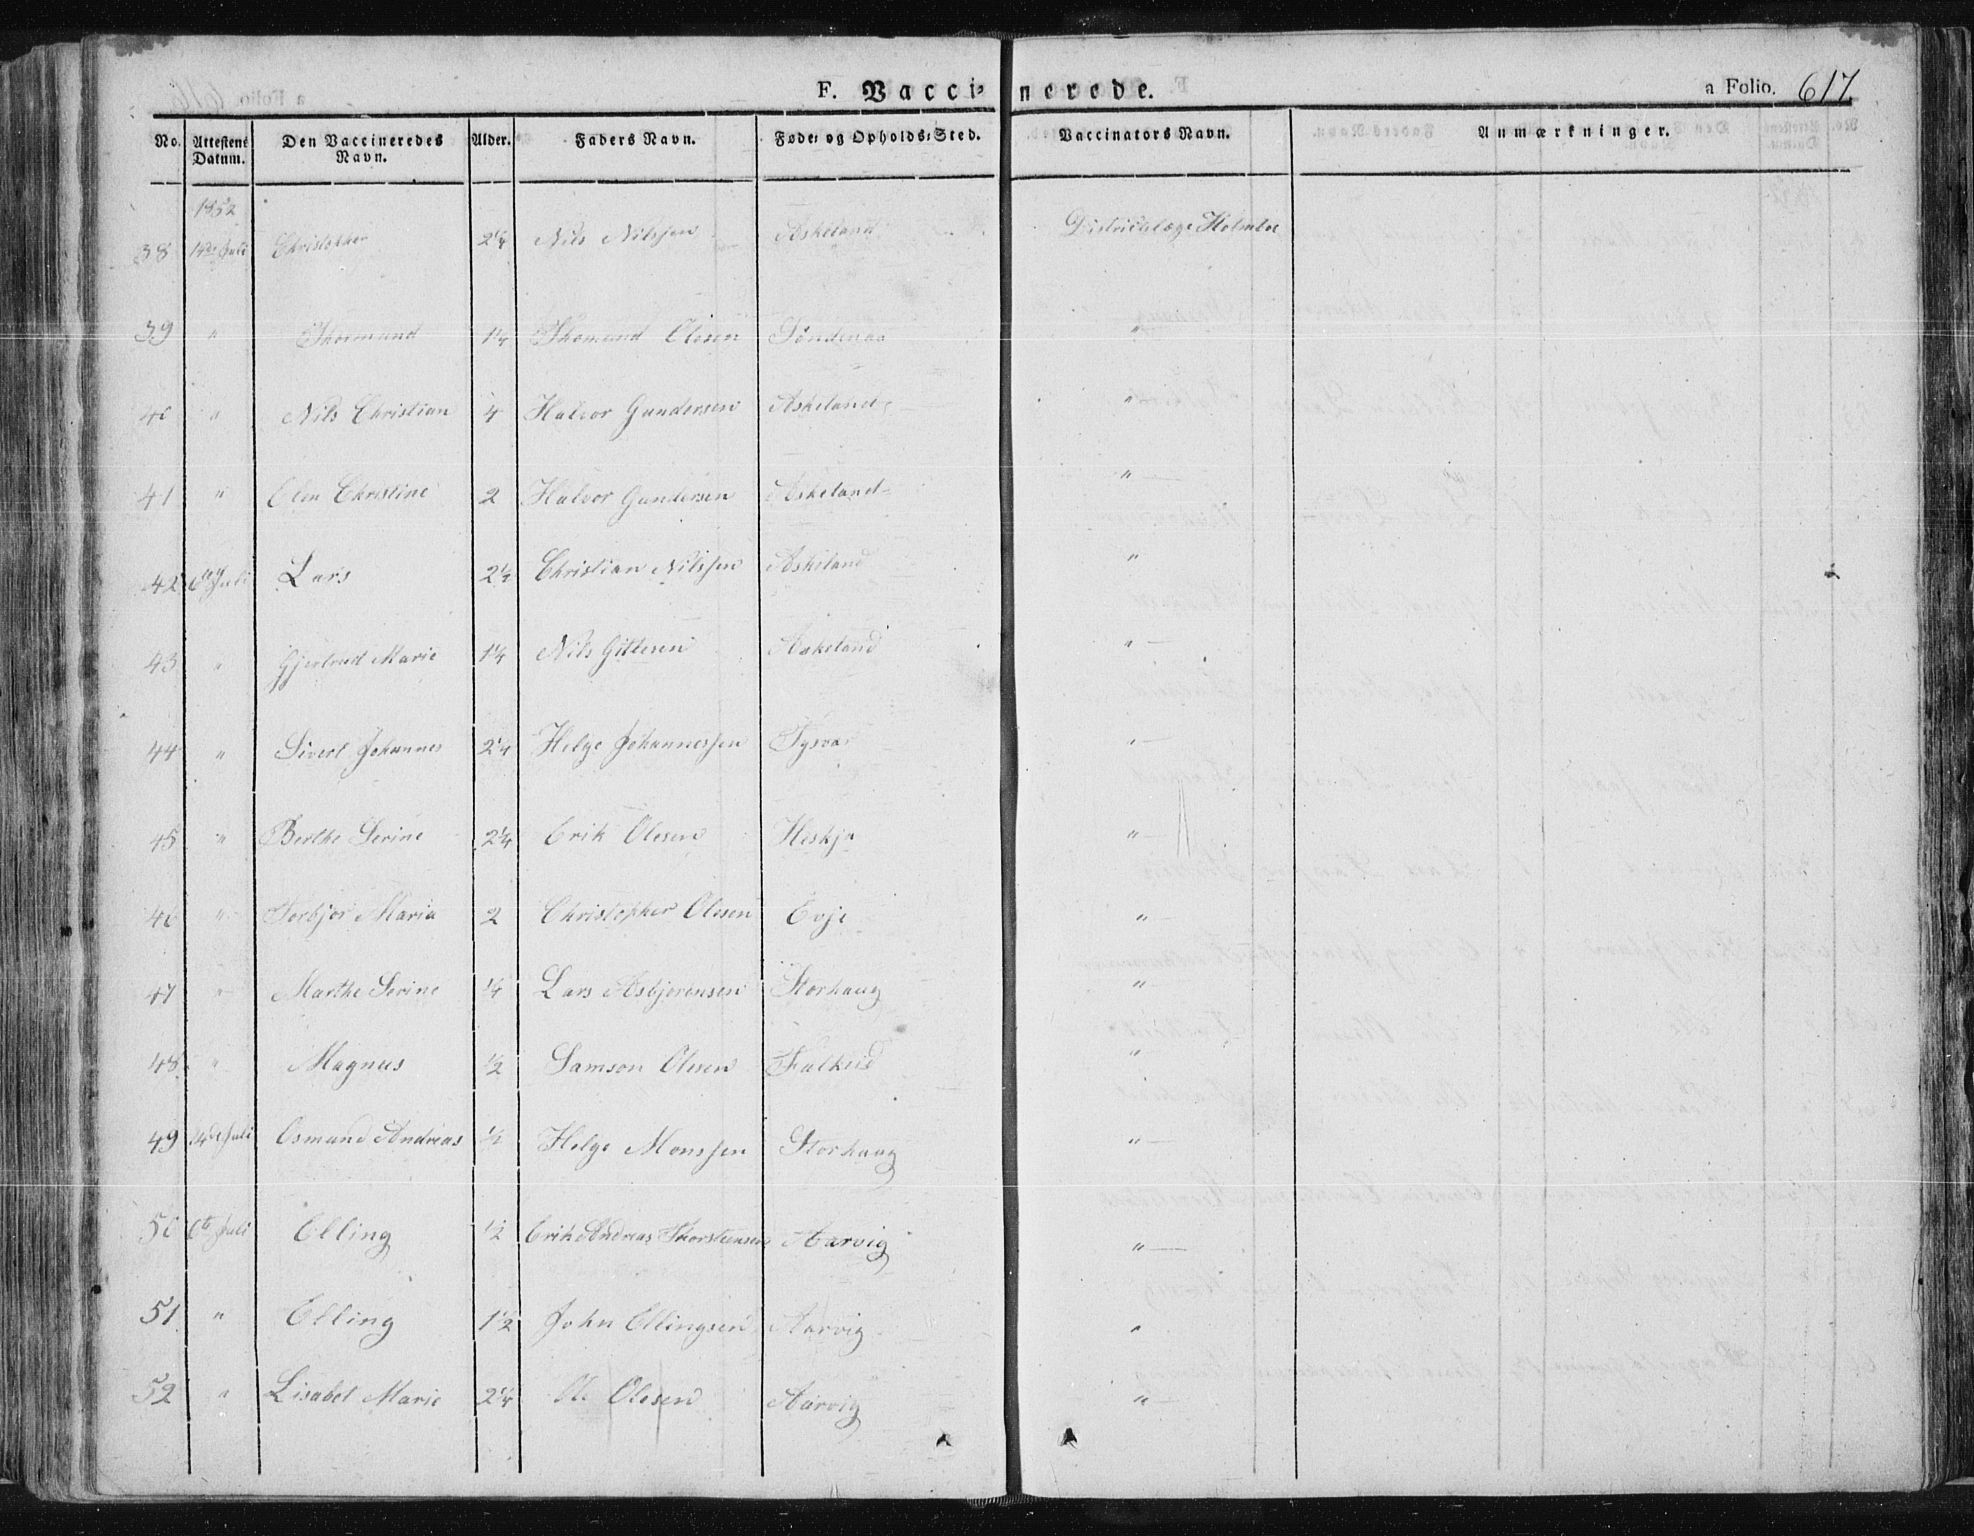 F. Vaccinerede. a Folio. 617
No. Attestens Datum. Den Vaccineredes Navn. Alder. Faders Navn. Føde- og Opholds-Sted. Vaccinators Navn. Anmærkninger.
1852
38 14de Juli Christopher 2¼ Nils Nilssen Askeland Districtslæge Holmboe
39 " Thormund 1¼ Thomund Olesen Søndenaa "
40 " Nils Christian 4 Halvor Gundersen Askeland "
41 " Elen Christine 2 Halvor Gundersen Askeland "
42 6te Juli Lars 2½ Christian Nilssen Askeland "
43 " Gjertrud Marie 1¼ Nils Gittesen Aakeland "
44 " Sivert Johannes 2¼ Helge Johannessen Tysvær "
45 " Berthe Serine 2¼ Erik Olesen Heskja "
46 " Torbjør Maria 2 Christopher Olesen Evje "
47 " Marthe Serine ¼ Lars Asbjørensen Storhaug "
48 " Magnus ½ Samson Olesen Falkeid "
49 14de Juli Osmund Andreas ½ Helge Monssen Storhaug "
50 6te Juli Elling ½ Erik Andreas Thorsteensen Aarvig "
51 " Elling 1½ John Ellingsen Aarvig "
52 " Lisabet Marie 2¼ Ole Olesen Aarvig "